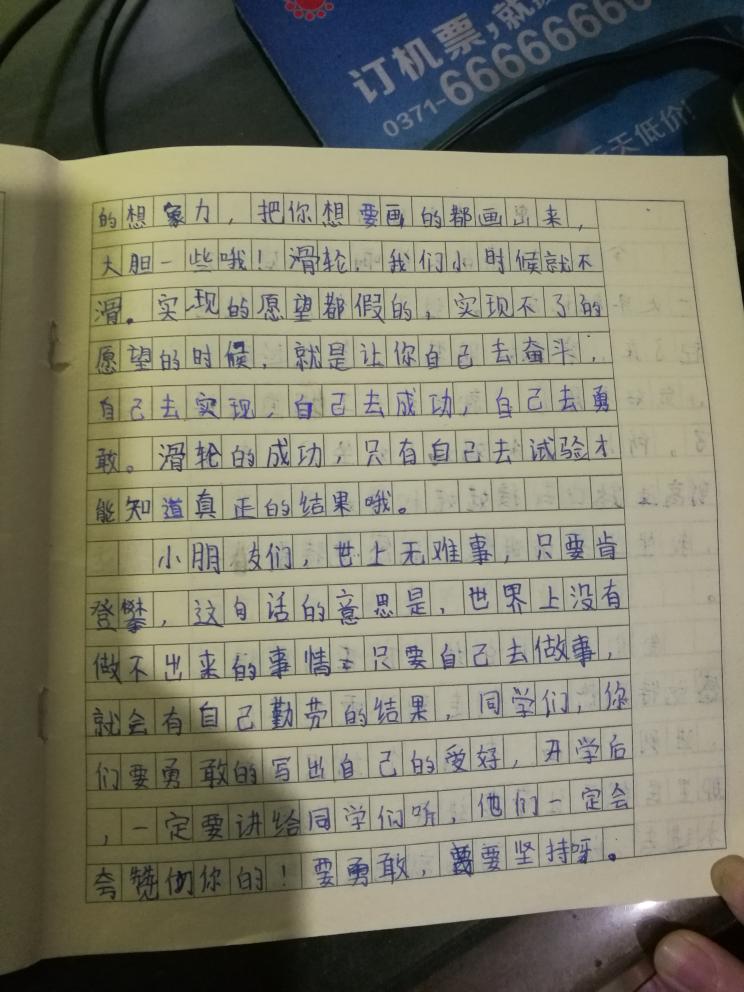 订机票,就
0371-66666666
天低价!
的想象力，把你想要画的都画出来，
大胆一些哦！滑轮，我们小时候就不
滑。实现的愿望都假的，实现不了的
愿望的时候，就是让你自己去奋斗，
自己去实现，自己去成功，自己去勇
敢。滑轮的成功，只有自己去试验才
能知道真正的结果哦。
小朋友们，世上无难事，只要肯
登攀，这句话的意思是，世界上没有
做不出来的事情；只要自己去做事，
就会有自己勤劳的结果，同学们，你
们要勇敢的写出自己的爱好，开学后
，一定要讲给同学们听，他们一定会
夸赞你的！要勇敢，要坚持呀。